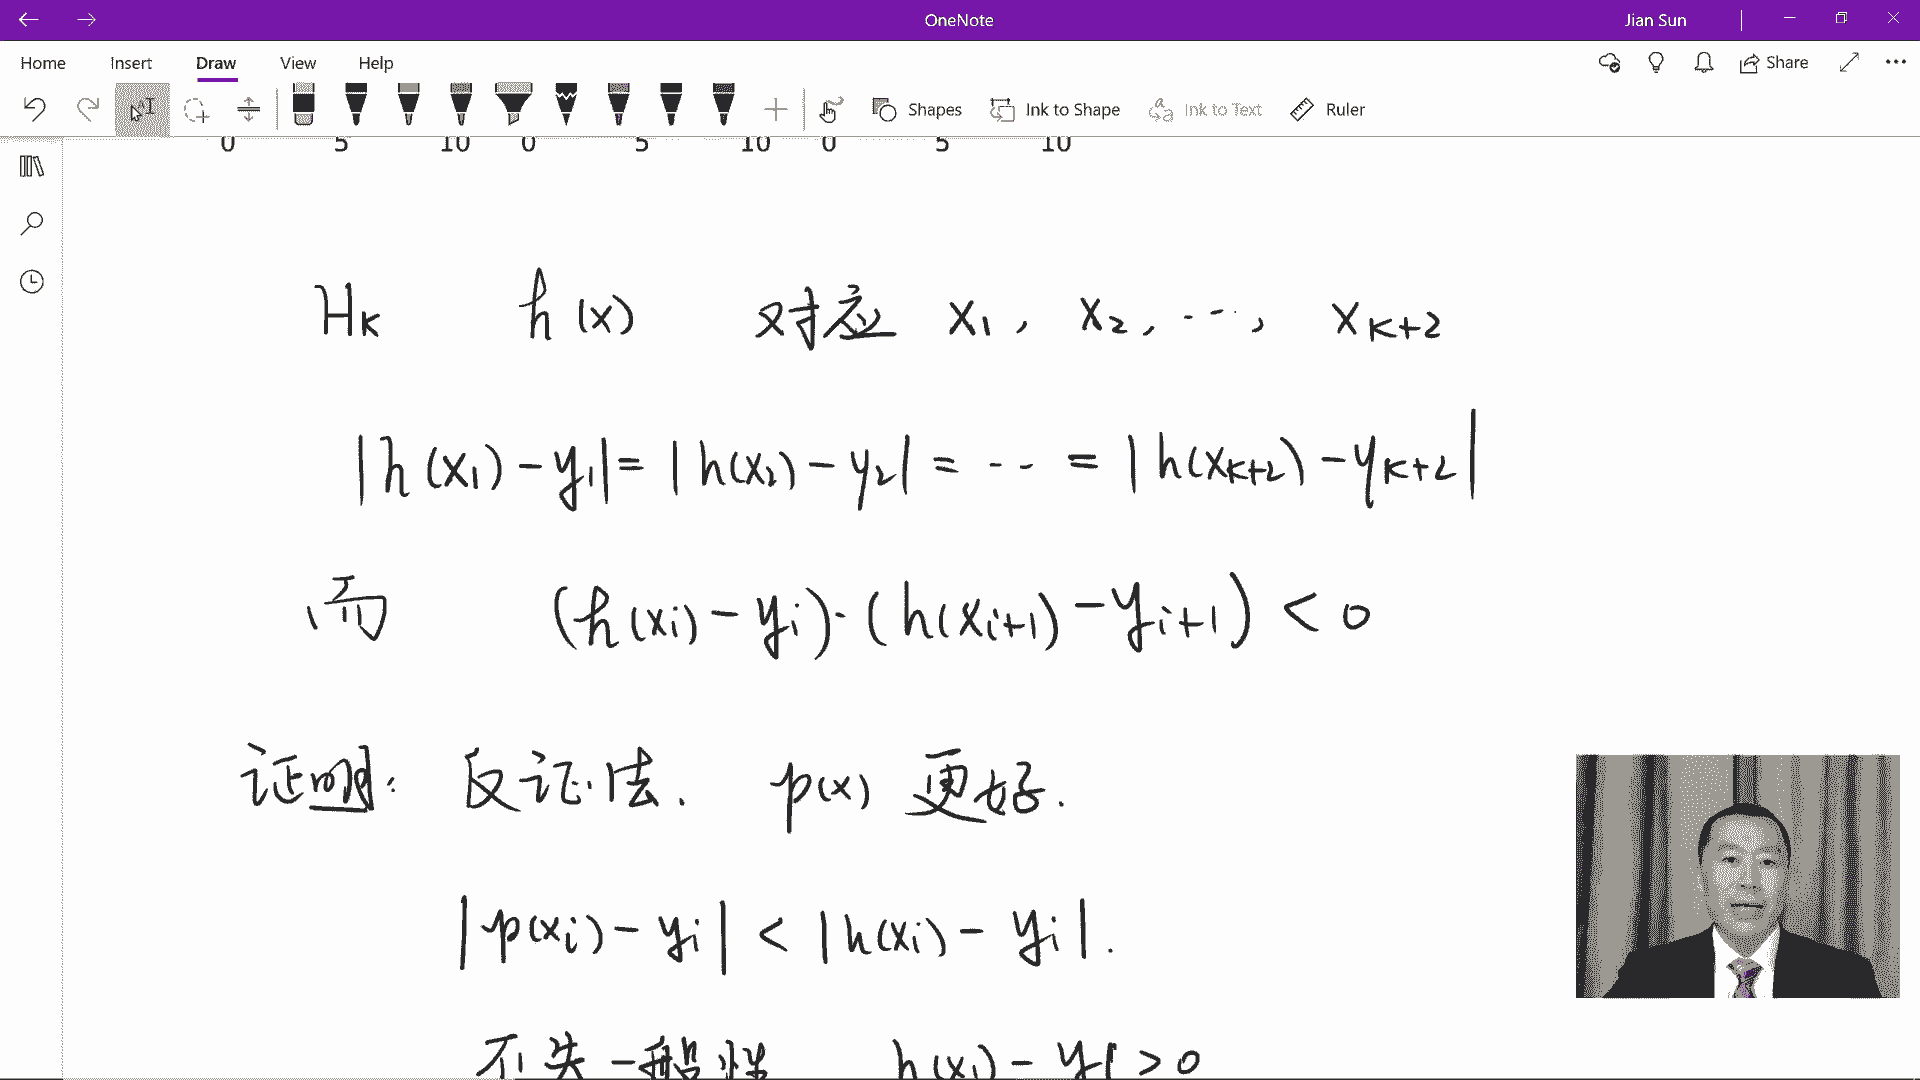 OneNote
Jian Sun
Home Insert Draw View Help
Share
Shapes Ink to Shape Ink to Text Ruler
0 5 10 0 5 10 0 5 10
H_K h(x) 对应 x_1, x_2, ..., x_{K+2}
|h(x_1) - y_1| = |h(x_2) - y_2| = ... = |h(x_{K+2}) - y_{K+2}|
而 (h(x_i) - y_i)·(h(x_{i+1}) - y_{i+1}) < 0
证明: 反证法. p(x) 更好.
|p(x_i) - y_i| < |h(x_i) - y_i|.
不失一般性 h(x_1) - y_1 > 0